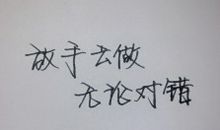 放手去做
无论对错